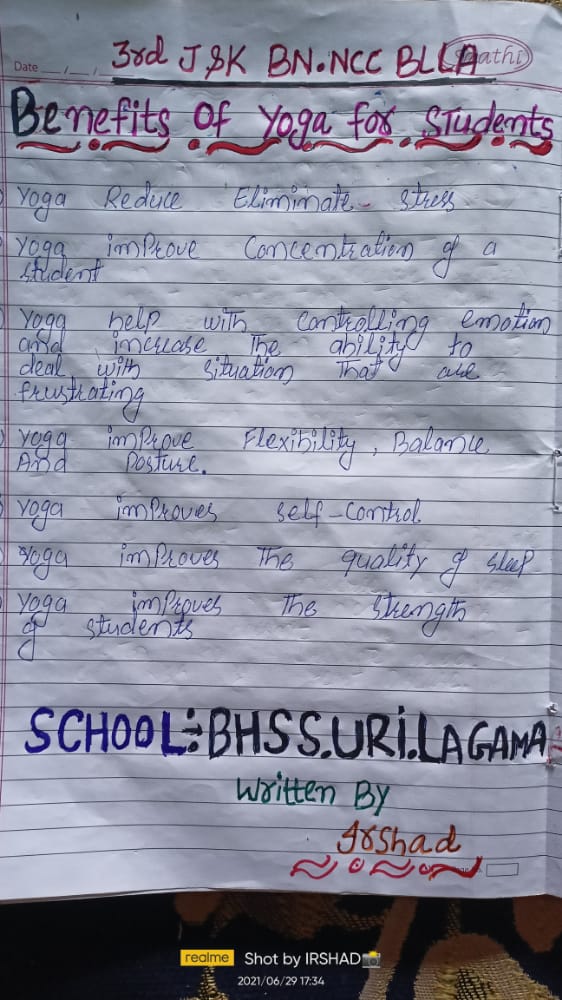 3rd J&K BN.NCC BLLA
Date __/__/__
Benefits Of Yoga for Students
Yoga Reduce Eliminate - stress
Yoga imProve Concentration of a
student
Yoga help with Controlling emotion
and increase The ability to
deal with situation That are
frustrating
Yoga imProve Flexibility, Balance
And Posture.
Yoga imProves self-Control
Yoga imProves The quality of sleep
Yoga imProves The strength
of students
SCHOOL:-BHSS.URI.LAGAMA
Written By
Irshad
realme Shot by IRSHAD📸
2021/06/29 17:34